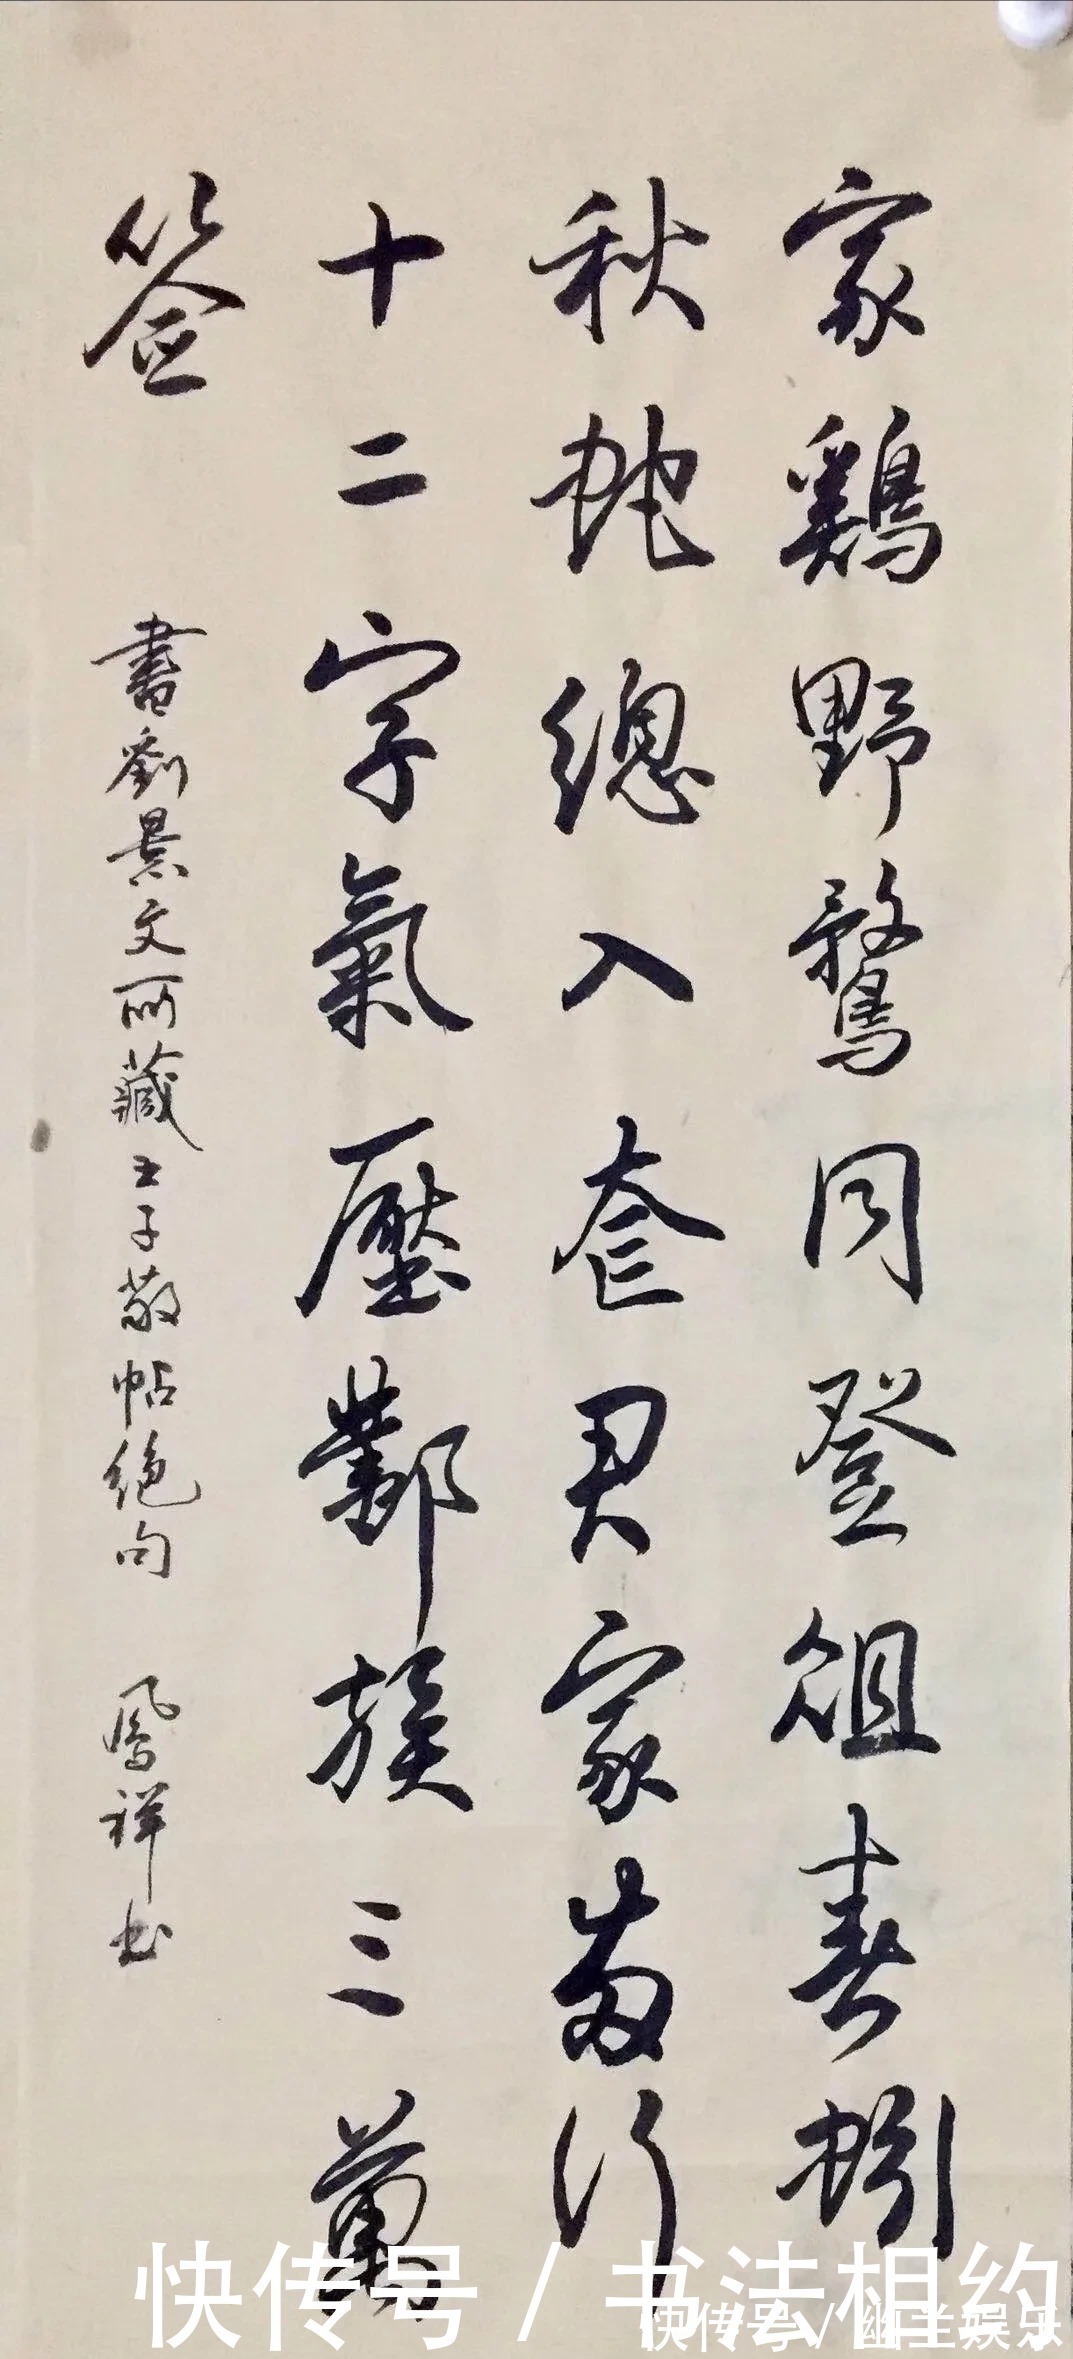 家鷄野鶩同登俎春蚓
秋蛇總入奁君家两行
十二字氣壓鄴族三萬
签
書劉景文所藏王子敬帖絶句 鳳祥书
快传号 / 书法相约
快传号 / 幽兰娱乐